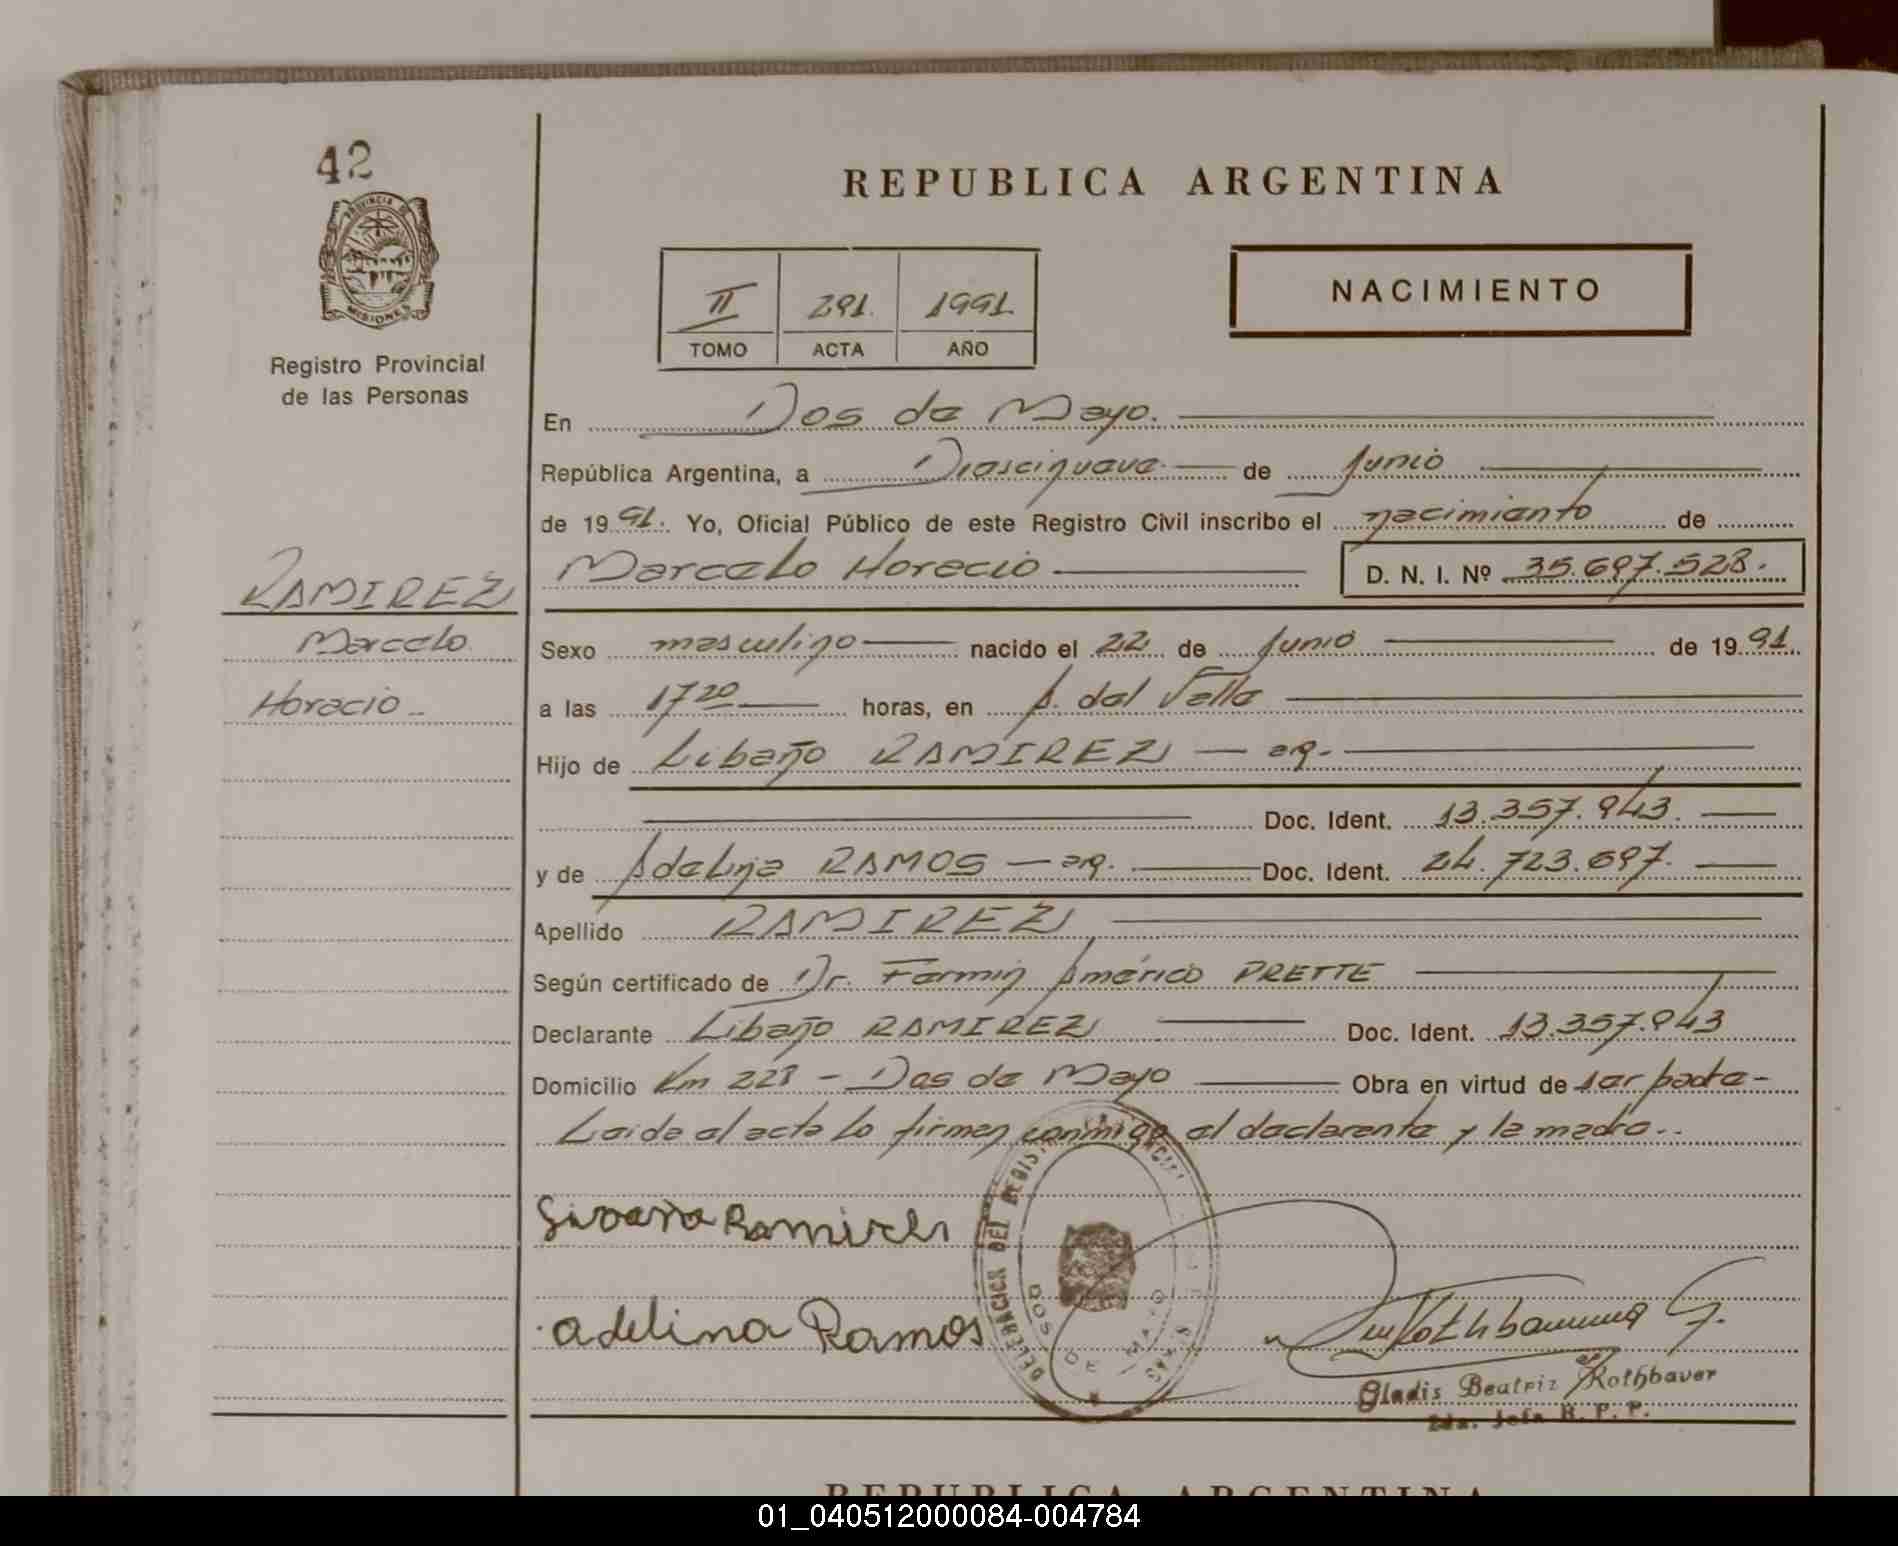 42
PROVINCIA DE
MISIONES
Registro Provincial
de las Personas
RAMIREZ
Marcelo
Horacio
REPUBLICA ARGENTINA
II 291. 1991.
TOMO ACTA AÑO
NACIMIENTO
En Dos de Mayo.
República Argentina, a Diecinueve de Junio
de 19 91. Yo, Oficial Público de este Registro Civil inscribo el nacimiento de
Marcelo Horacio D. N. I. Nº 35.697.528.
Sexo masculino nacido el 22 de Junio de 19 91.
a las 17 20 horas, en A. del Valle
Hijo de RAMIREZ — arg.
Doc. Ident. 13.357.943.
y de Adelina RAMOS — arg. Doc. Ident. 24.723.697.
Apellido RAMIREZ
Según certificado de Dr. Fermin Américo PRETTE
Declarante RAMIREZ Doc. Ident. 13.357.943
Domicilio Km 228 - Dos de Mayo Obra en virtud de ser padre -
Leida el acta lo firman conmigo el declarante y la madre..
Ramirez
adelina Ramos
DELEGACION DEL REGISTRO
DOS DE MAYO
Gladis Beatriz Rothbaver
2da. Jefa R. P. P.
REPUBLICA ARGENTINA
01_040512000084-004784